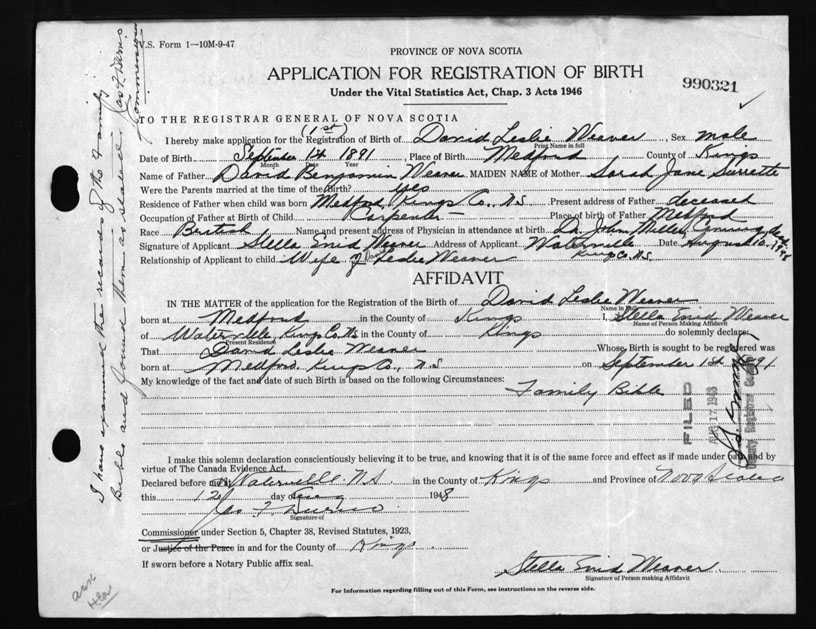 V.S. Form 1—10M-9-47
PROVINCE OF NOVA SCOTIA
APPLICATION FOR REGISTRATION OF BIRTH
Under the Vital Statistics Act, Chap. 3 Acts 1946
990321
TO THE REGISTRAR GENERAL OF NOVA SCOTIA
(1st)
I hereby make application for the Registration of Birth of David Leslie Weaver, Sex male
Print Name in full
Date of Birth September 1st 1891, Place of Birth Medford County of Kings
Month Day Year
Name of Father David Benjamin Weaver MAIDEN NAME of Mother Sarah Jane Surrette
Were the Parents married at the time of the Birth? yes
Residence of Father when child was born Medford, Kings Co., N.S. Present address of Father deceased
Occupation of Father at Birth of Child Carpenter Place of birth of Father Medford
Race British Name and present address of Physician in attendance at birth Dr. John Miller, Canning
Signature of Applicant Stella Enid Weaver Address of Applicant Waterville Date August 12, 1948
Kings Co. N.S.
Relationship of Applicant to child Wife of David Leslie Weaver
AFFIDAVIT
IN THE MATTER of the application for the Registration of the Birth of David Leslie Weaver
Name in full
born at Medford in the County of Kings I, Stella Enid Weaver
Name of Person Making Affidavit
of Waterville, Kings Co. N.S. in the County of Kings do solemnly declare:
Present Residence
That David Leslie Weaver Whose Birth is sought to be registered was
born at Medford, Kings Co., N.S. on September 1st 1891
My knowledge of the fact and date of such Birth is based on the following Circumstances:
Family Bible
I make this solemn declaration conscientiously believing it to be true, and knowing that it is of the same force and effect as if made under oath and by
virtue of The Canada Evidence Act.
Declared before me at Waterville N.S. in the County of Kings and Province of Nova Scotia
this 12 day of Aug 1948
Jas. F. Durno
Signature of
Commissioner under Section 5, Chapter 38, Revised Statutes, 1923,
or Justice of the Peace in and for the County of Kings
If sworn before a Notary Public affix seal.
Stella Enid Weaver
Signature of Person making Affidavit
For Information regarding filling out of this Form, see instructions on the reverse side.
I have examined the records of the Family
Bible and found them as stated. Jas F. Durno
Commissioner
FILED
AUG 17 1948
Deputy Registrar General